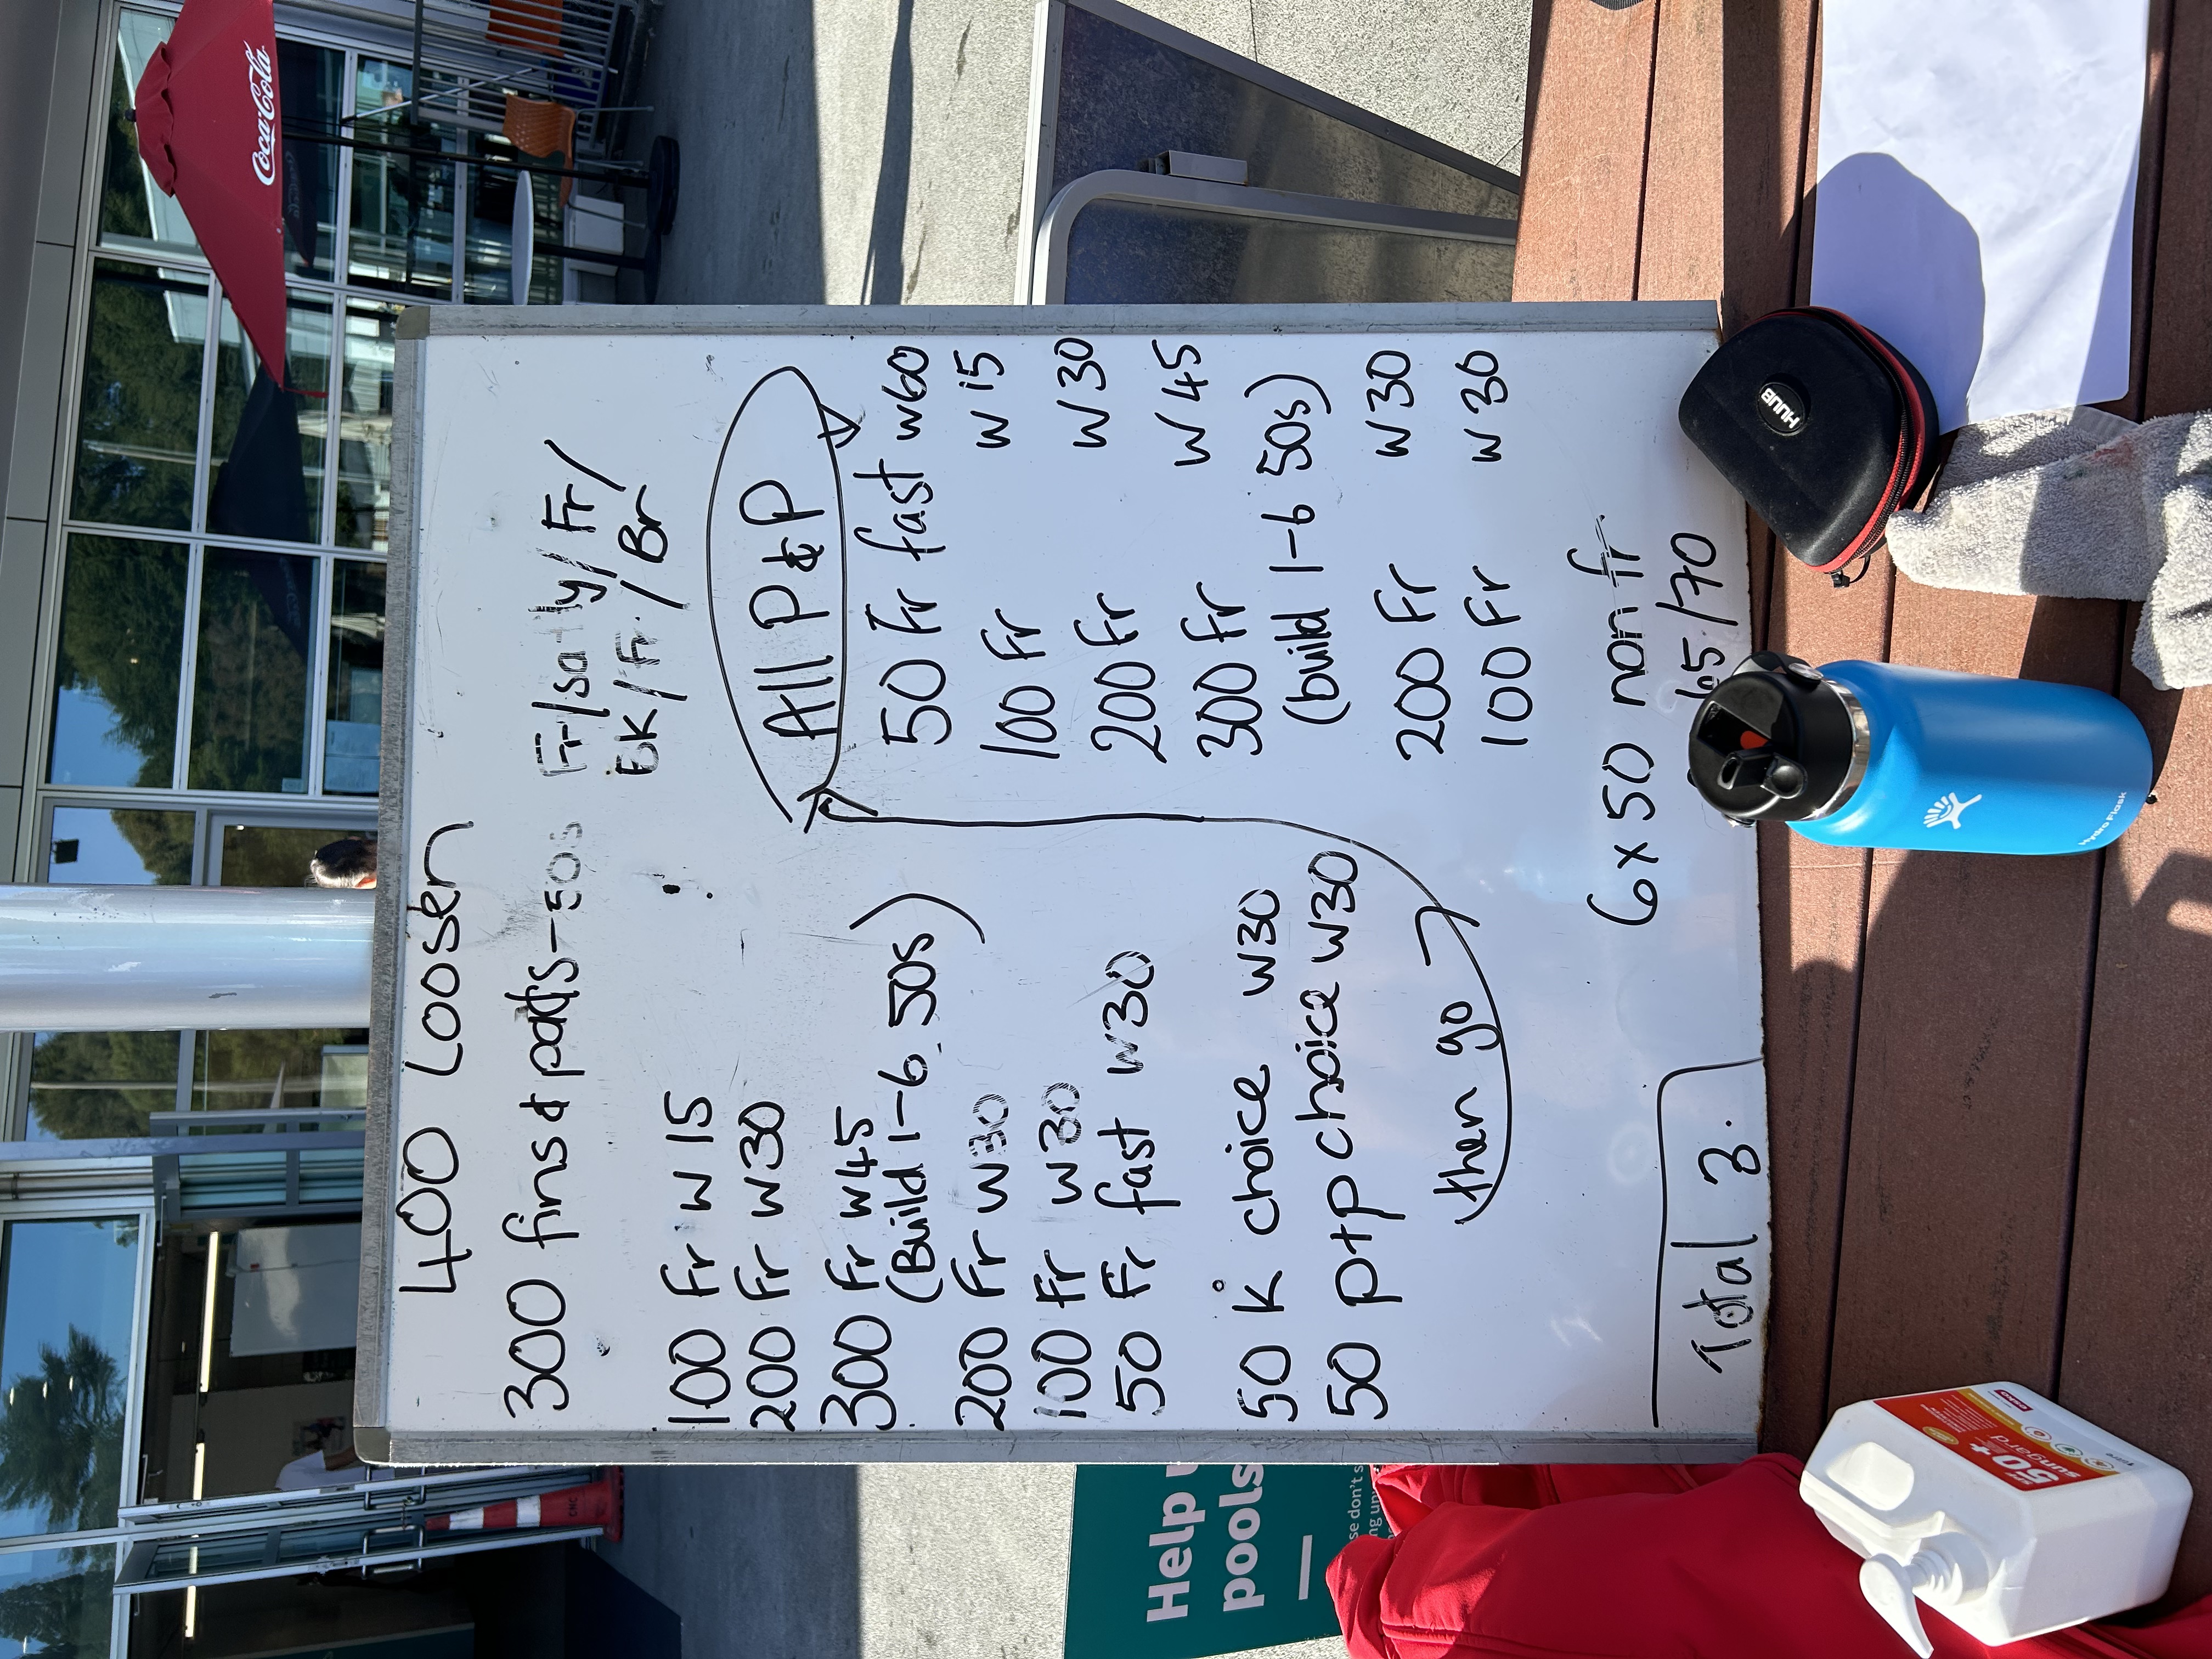 400 Loosen
300 fins & pads-50s Fr/sa-fly/Fr/
BK/Fr./Br
100 Fr w 15
200 Fr w30
300 Fr w45
(Build 1-6. 50s)
200 Fr w30
100 Fr w30
50 Fr fast w30
50 K choice w30
50 p+p choice w30
then go
All P & P
50 Fr fast w60
100 Fr w 15
200 Fr w 30
300 Fr w 45
(build 1-6 50s)
200 Fr w 30
100 Fr w 30
6 x 50 non fr.
65/70
Total 3.
Coca-Cola
HUUB
Hydro Flask
Help
pools
se don't s
ng up
50+
sungard
CMC